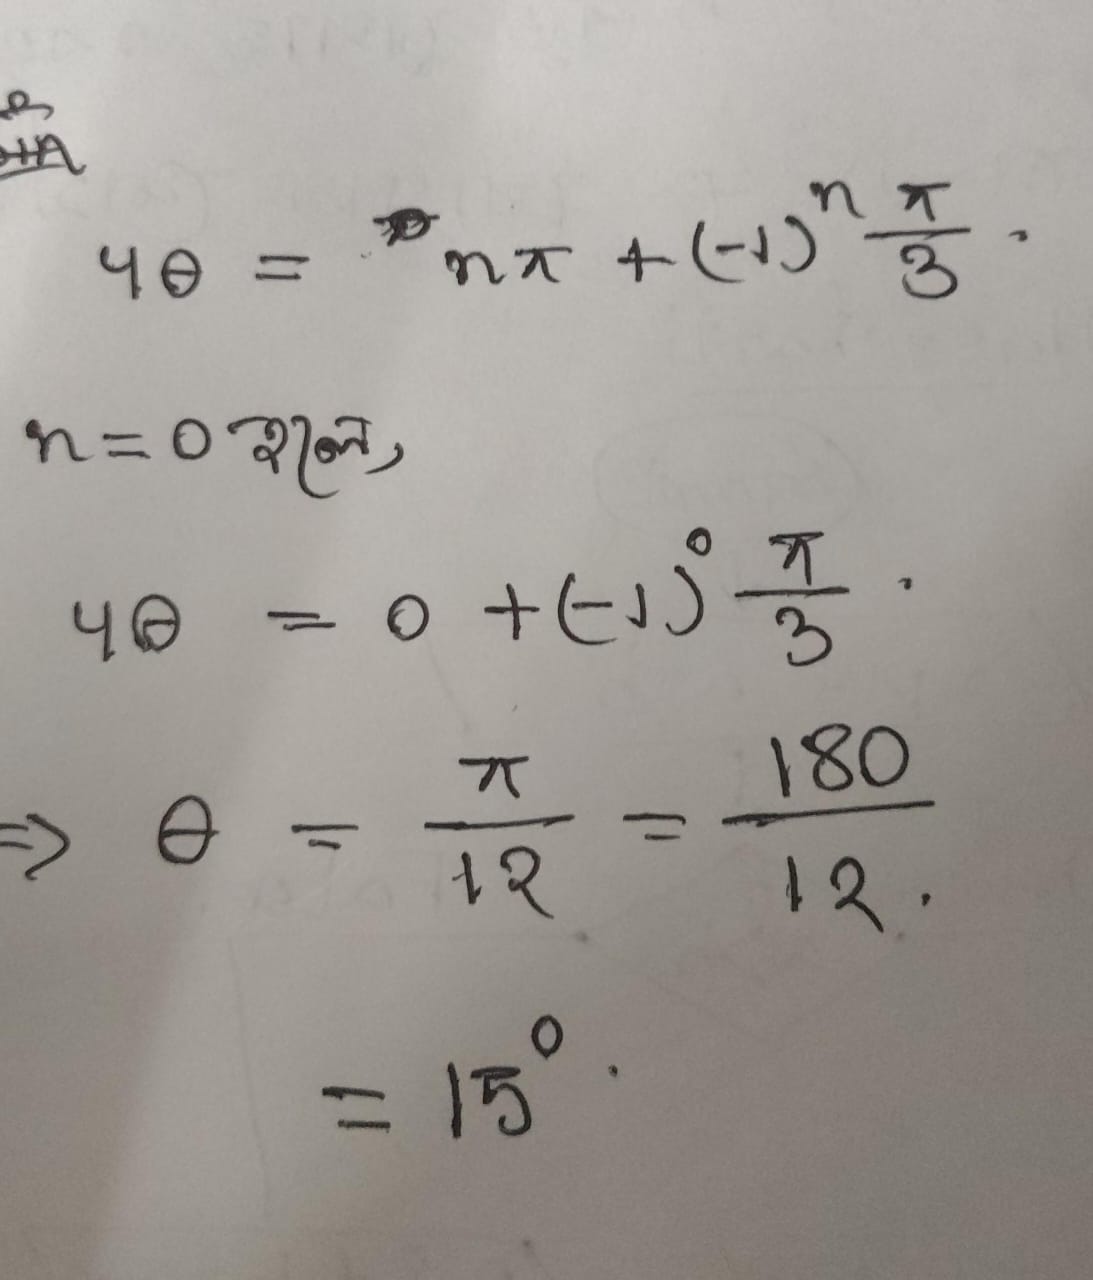 4θ = nπ + (-1)ⁿ π/3 .
n = 0 হলে,
4θ = 0 + (-1)⁰ π/3 .
=> θ = π/12 = 180/12 .
= 15° .